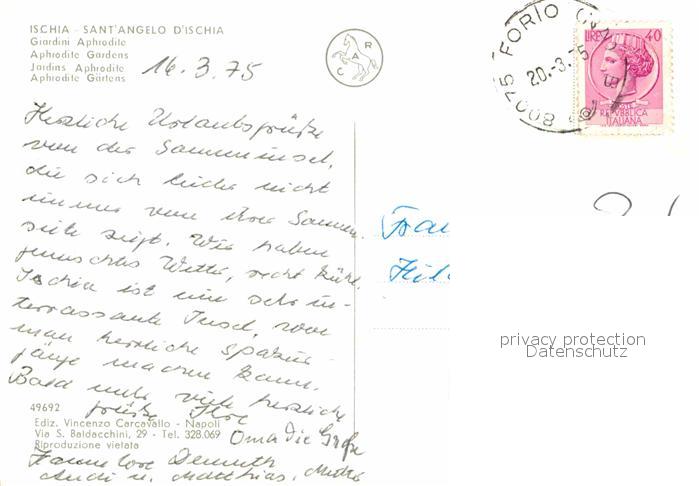 ISCHIA - SANT'ANGELO D'ISCHIA
Giardini Aphrodite
Aphrodite Gardens
Jardins Aphrodite
Aphrodite Gärten
16.3.75
C A R
75 FORIO
20.-3.75
80075
LIRE 40
POSTE
REPUBBLICA
ITALIANA
Herzliche Urlaubsgrüße
von der Sonneninsel,
die sich leider nicht
immer von ihrer Sonnen-
seite zeigt. Wir haben
gemischtes Wetter, recht kühl.
Ischia ist eine sehr in-
terressante Insel, wo
man herrliche Spazier-
gänge machen kann.
Bald mehr, viele herzliche
Grüße Ihre
Oma die Große
Hannelore Demuth
Andi u. Matthias,
Frau
Hil
49692
Ediz. Vincenzo Carcavallo - Napoli
Via S. Baldacchini, 29 - Tel. 328.069
Riproduzione vietata
privacy protection
Datenschutz